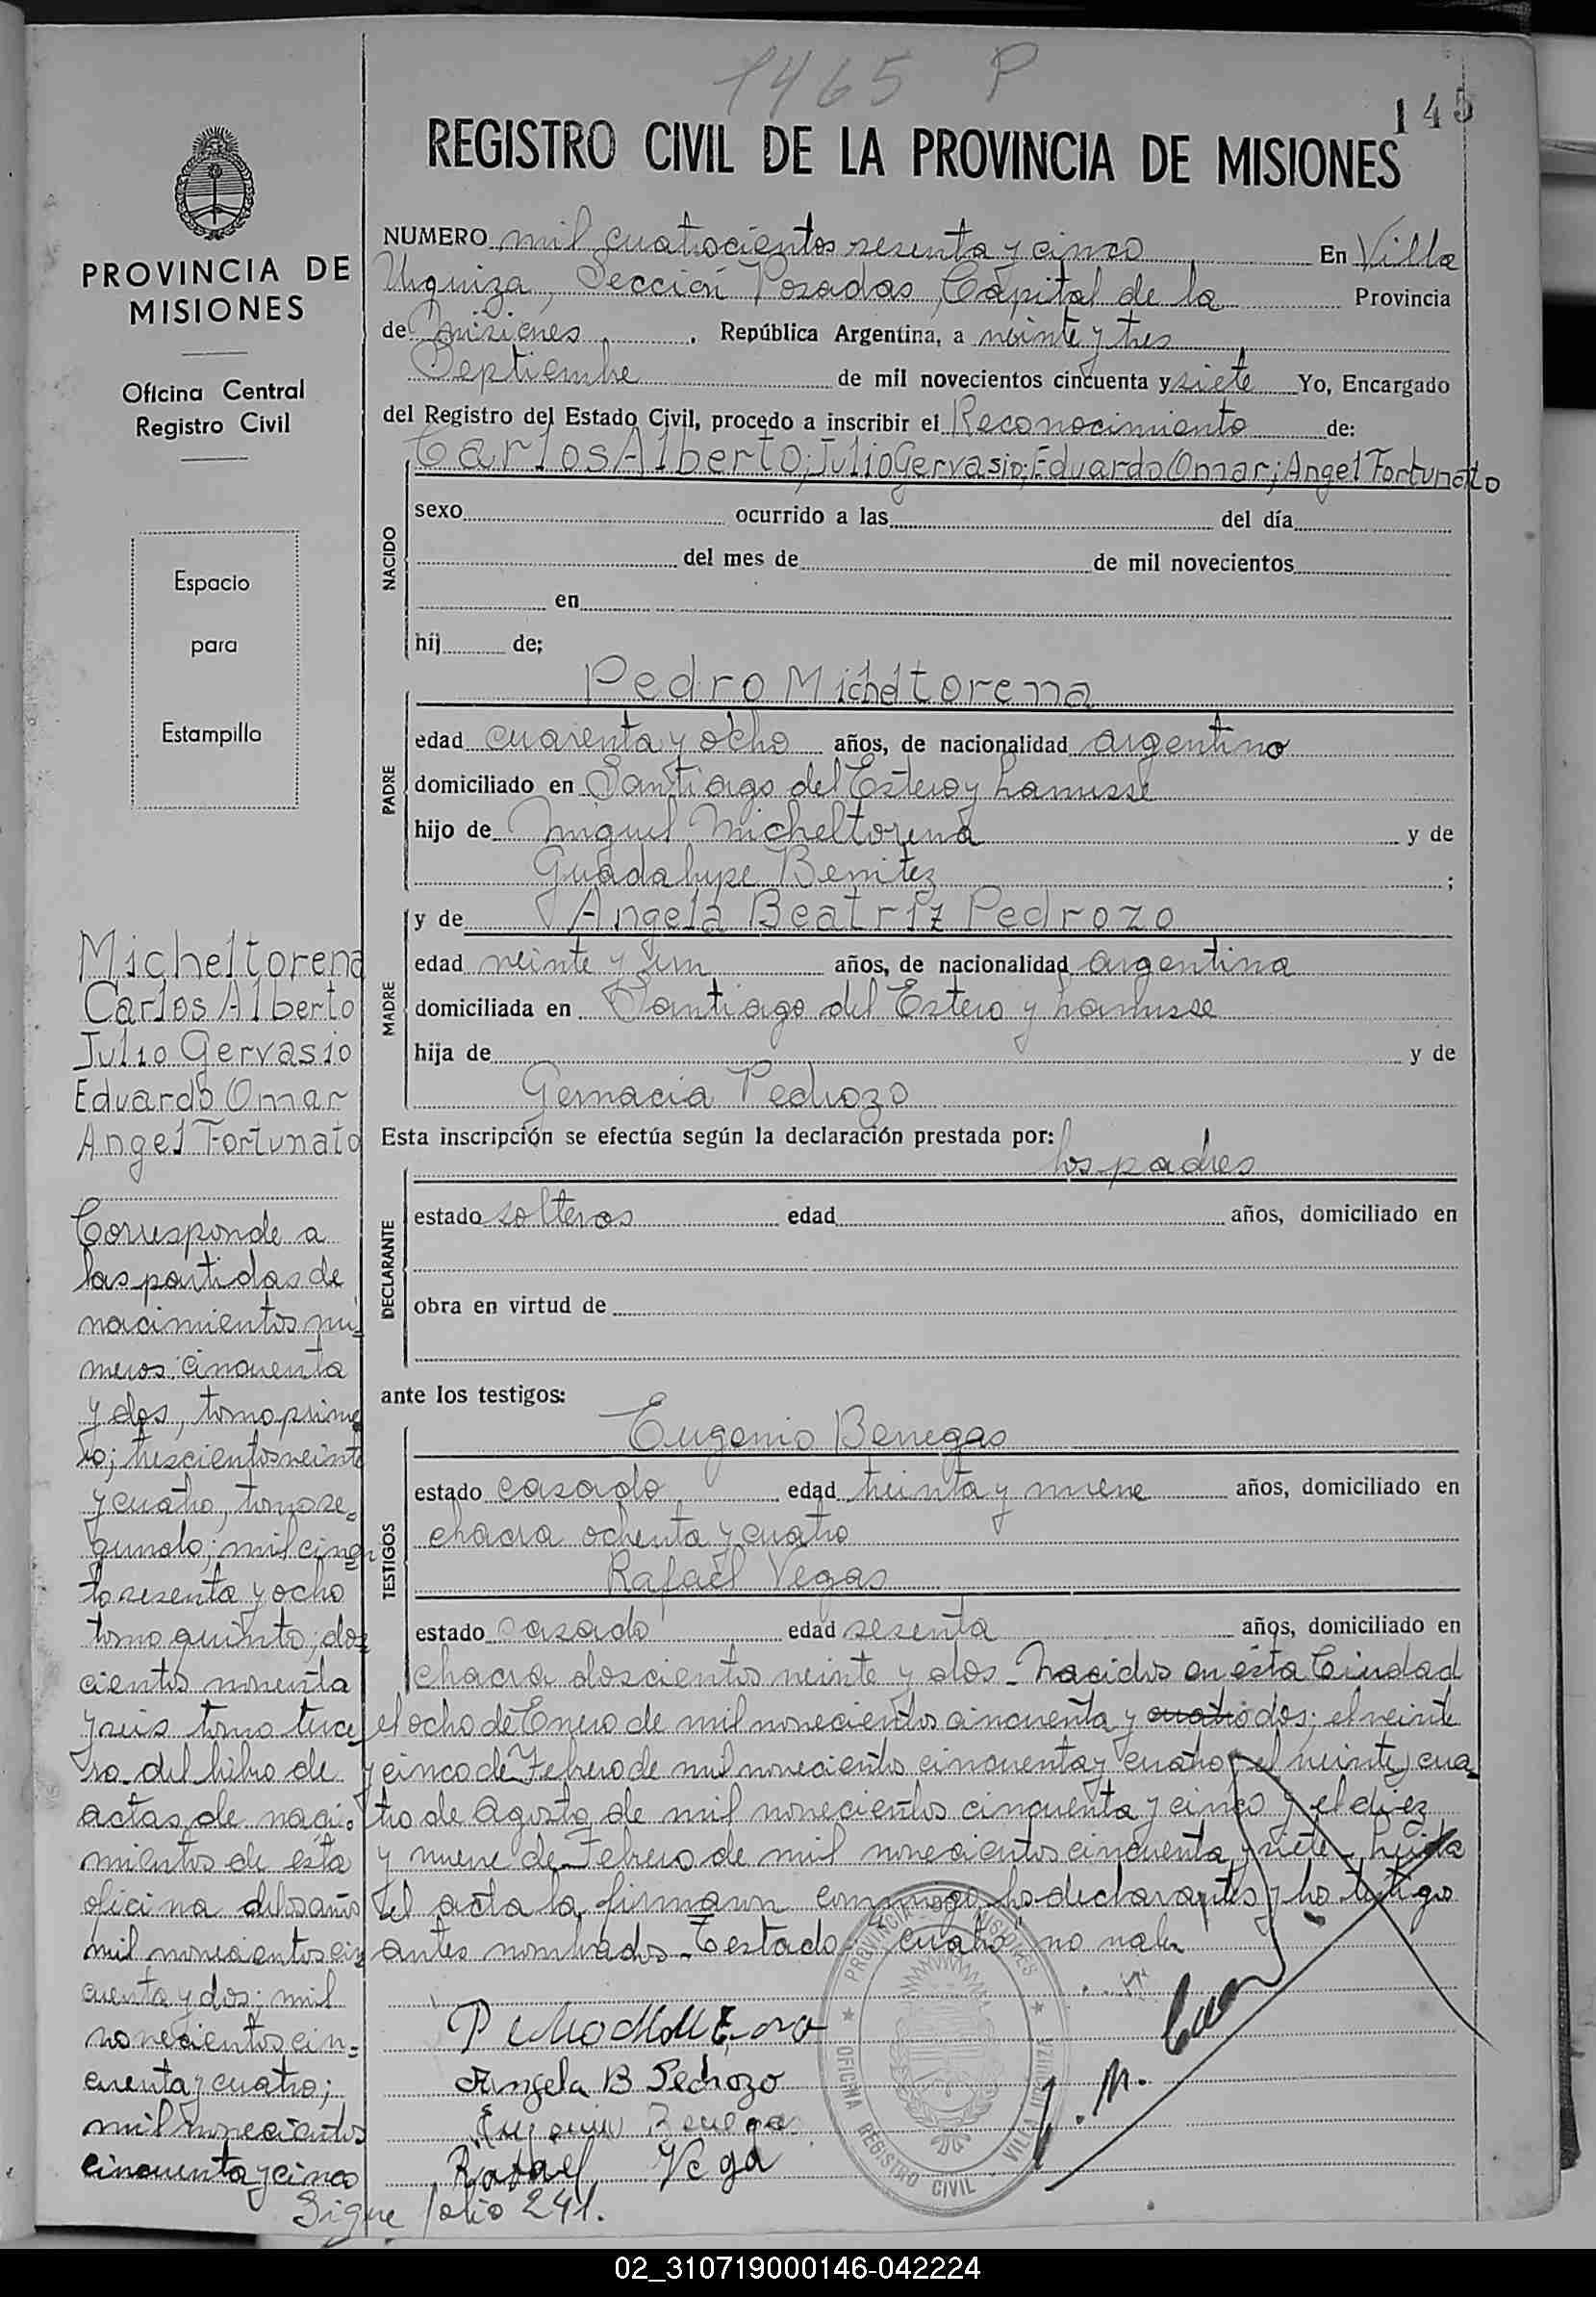 1465 P
145
REGISTRO CIVIL DE LA PROVINCIA DE MISIONES
PROVINCIA DE
MISIONES
Oficina Central
Registro Civil
Espacio
para
Estampilla
NUMERO mil cuatrocientos sesenta y cinco En Villa
Urquiza, Sección Posadas, Capital de la Provincia
de Misiones. República Argentina, a veinte y tres
Septiembre de mil novecientos cincuenta y siete Yo, Encargado
del Registro del Estado Civil, procedo a inscribir el Reconocimiento de:
Carlos Alberto; Julio Gervasio; Eduardo Omar; Angel Fortunato
NACIDO
sexo ocurrido a las del día
del mes de de mil novecientos
en
hij de;
Pedro Micheltorena
PADRE
edad cuarenta y ocho años, de nacionalidad argentino
domiciliado en Santiago del Estero y Lanusse
hijo de Miguel Micheltorena y de
Guadalupe Benitez ;
y de Angela Beatriz Pedrozo
MADRE
edad veinte y un años, de nacionalidad argentina
domiciliada en Santiago del Estero y Lanusse
hija de y de
Pedrozo
Esta inscripción se efectúa según la declaración prestada por: los padres
DECLARANTE
estado solteros edad años, domiciliado en
obra en virtud de
ante los testigos:
TESTIGOS
Eugenio Benegas
estado casado edad treinta y nueve años, domiciliado en
chacra ochenta y cuatro
Rafael Vegas
estado casado edad sesenta años, domiciliado en
chacra doscientos veinte y dos - Nacidos en ésta Ciudad
el ocho de Enero de mil novecientos cincuenta y cuatro dos; el veinte
y cinco de Febrero de mil novecientos cincuenta y cuatro; el veinte y cua-
tro de Agosto de mil novecientos cincuenta y cinco y el diez
y nueve de Febrero de mil novecientos cincuenta y siete - Leída
el acta la firmaron conmigo los declarantes y los testigos
antes nombrados - Testado: "cuatro" no vale
Micheltorena
Carlos Alberto
Julio Gervasio
Eduardo Omar
Angel Fortunato
Corresponde a
las partidas de
nacimientos nú-
meros: cincuenta
y dos, tomo prime
ro; trescientos veinte
y cuatro, tomo se-
gundo; mil cien
to sesenta y ocho
tomo quinto; dos-
cientos noventa
y seis tomo terce
ro del libro de
actas de naci-
mientos de ésta
oficina de los años
mil novecientos cin
cuenta y dos; mil
novecientos cin-
cuenta y cuatro;
mil novecientos
cincuenta y cinco
Sigue folio 241.
Angela B Pedrozo
Eugenio Benega
Rafael Vega
PROVINCIA DE MISIONES
OFICINA REGISTRO CIVIL - VILLA URQUIZA
02_310719000146-042224